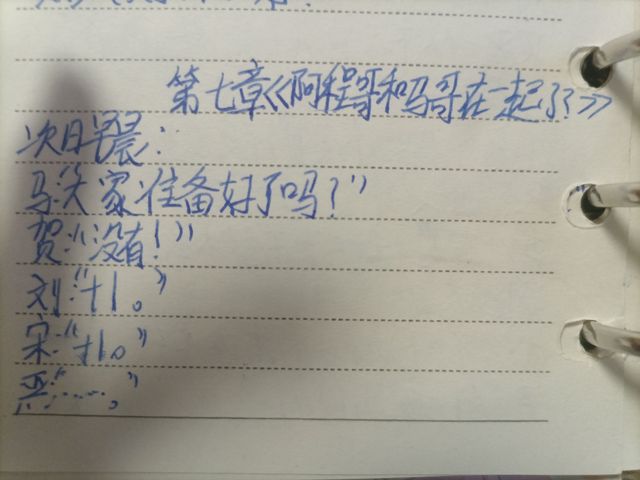 第七章《阿程哥和马哥在一起了?》
次日早晨:
马:"大家准备好了吗?"
贺:"没有!"
刘:"+1。"
宋:"+1。"
悉:"……。"